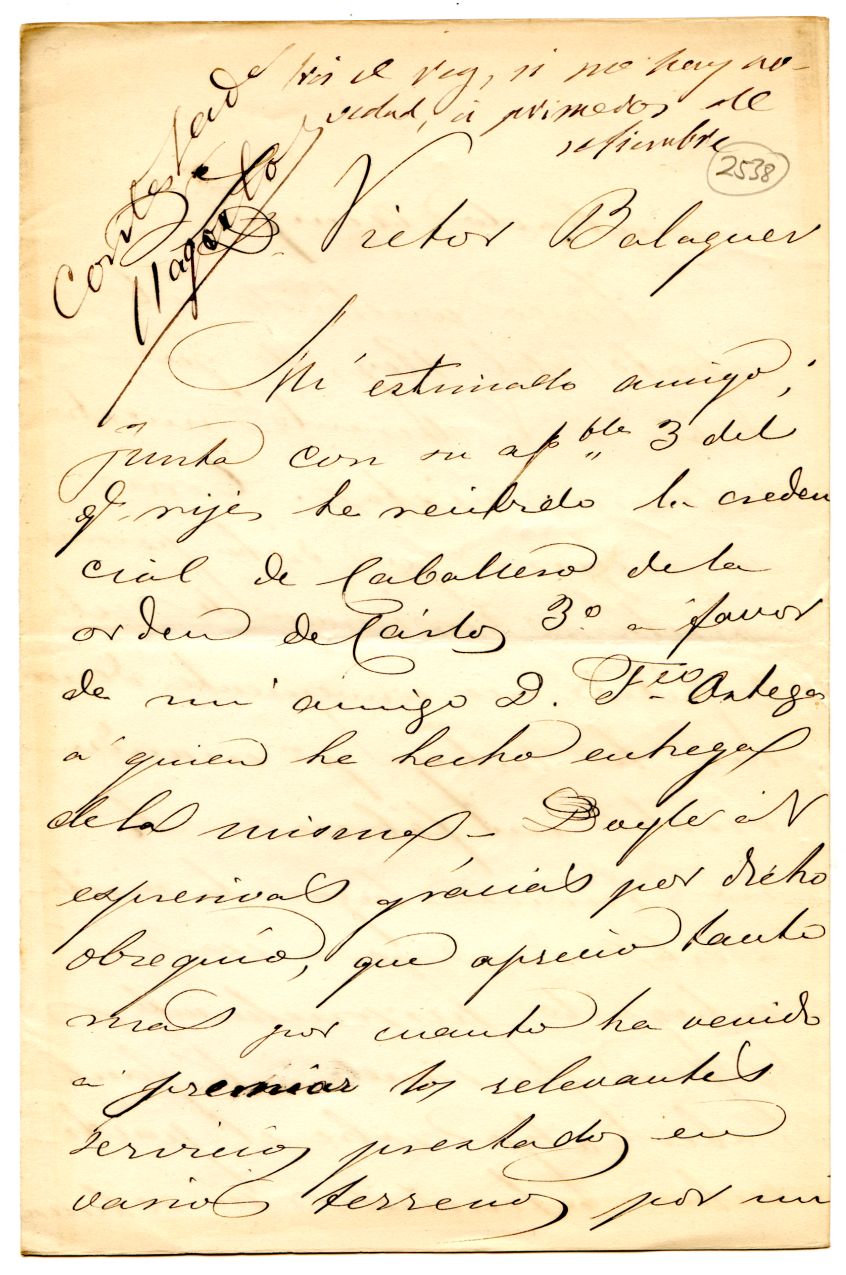 Irá el rey, si no hay no-
vedad, á primeros de
setiembre
2538
Contestada
11 agosto
D. Victor Balaguer
Mi estimado amigo;
junta con su ap.ble 3 del
q.e rije, he recibido la creden
cial de Caballero de la
orden de Cárlos 3.o a favor
de mi amigo D. F.co Ortega
á quien he hecho entrega
de la misma - Doyle á V
espresivas gracias por dicho
obsequio, que aprecio tanto
mas por cuanto ha venido
á premiar los relevantes
servicios prestados en
varios terrenos por mi